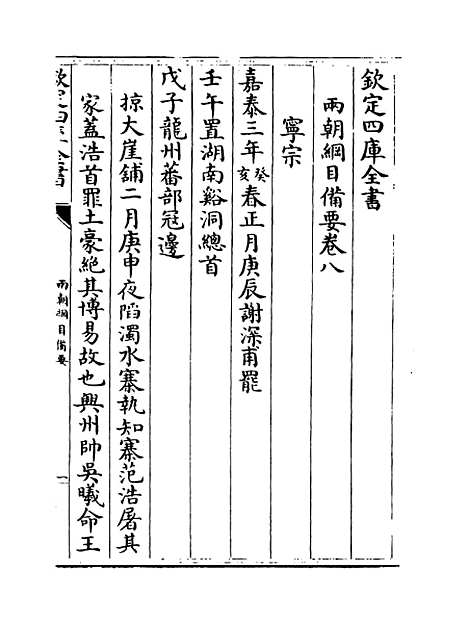 欽定四庫全書
兩朝綱目備要卷八
寧宗
嘉泰三年癸亥春正月庚辰謝深甫罷
壬午置湖南谿洞總首
戊子龍州蕃部寇邊
掠大崖舖二月庚申夜陷濁水寨執知寨范浩屠其
家蓋浩首罪土豪絶其博易故也興州帥吳曦命王
欽定四庫全書
兩朝綱目備要
一